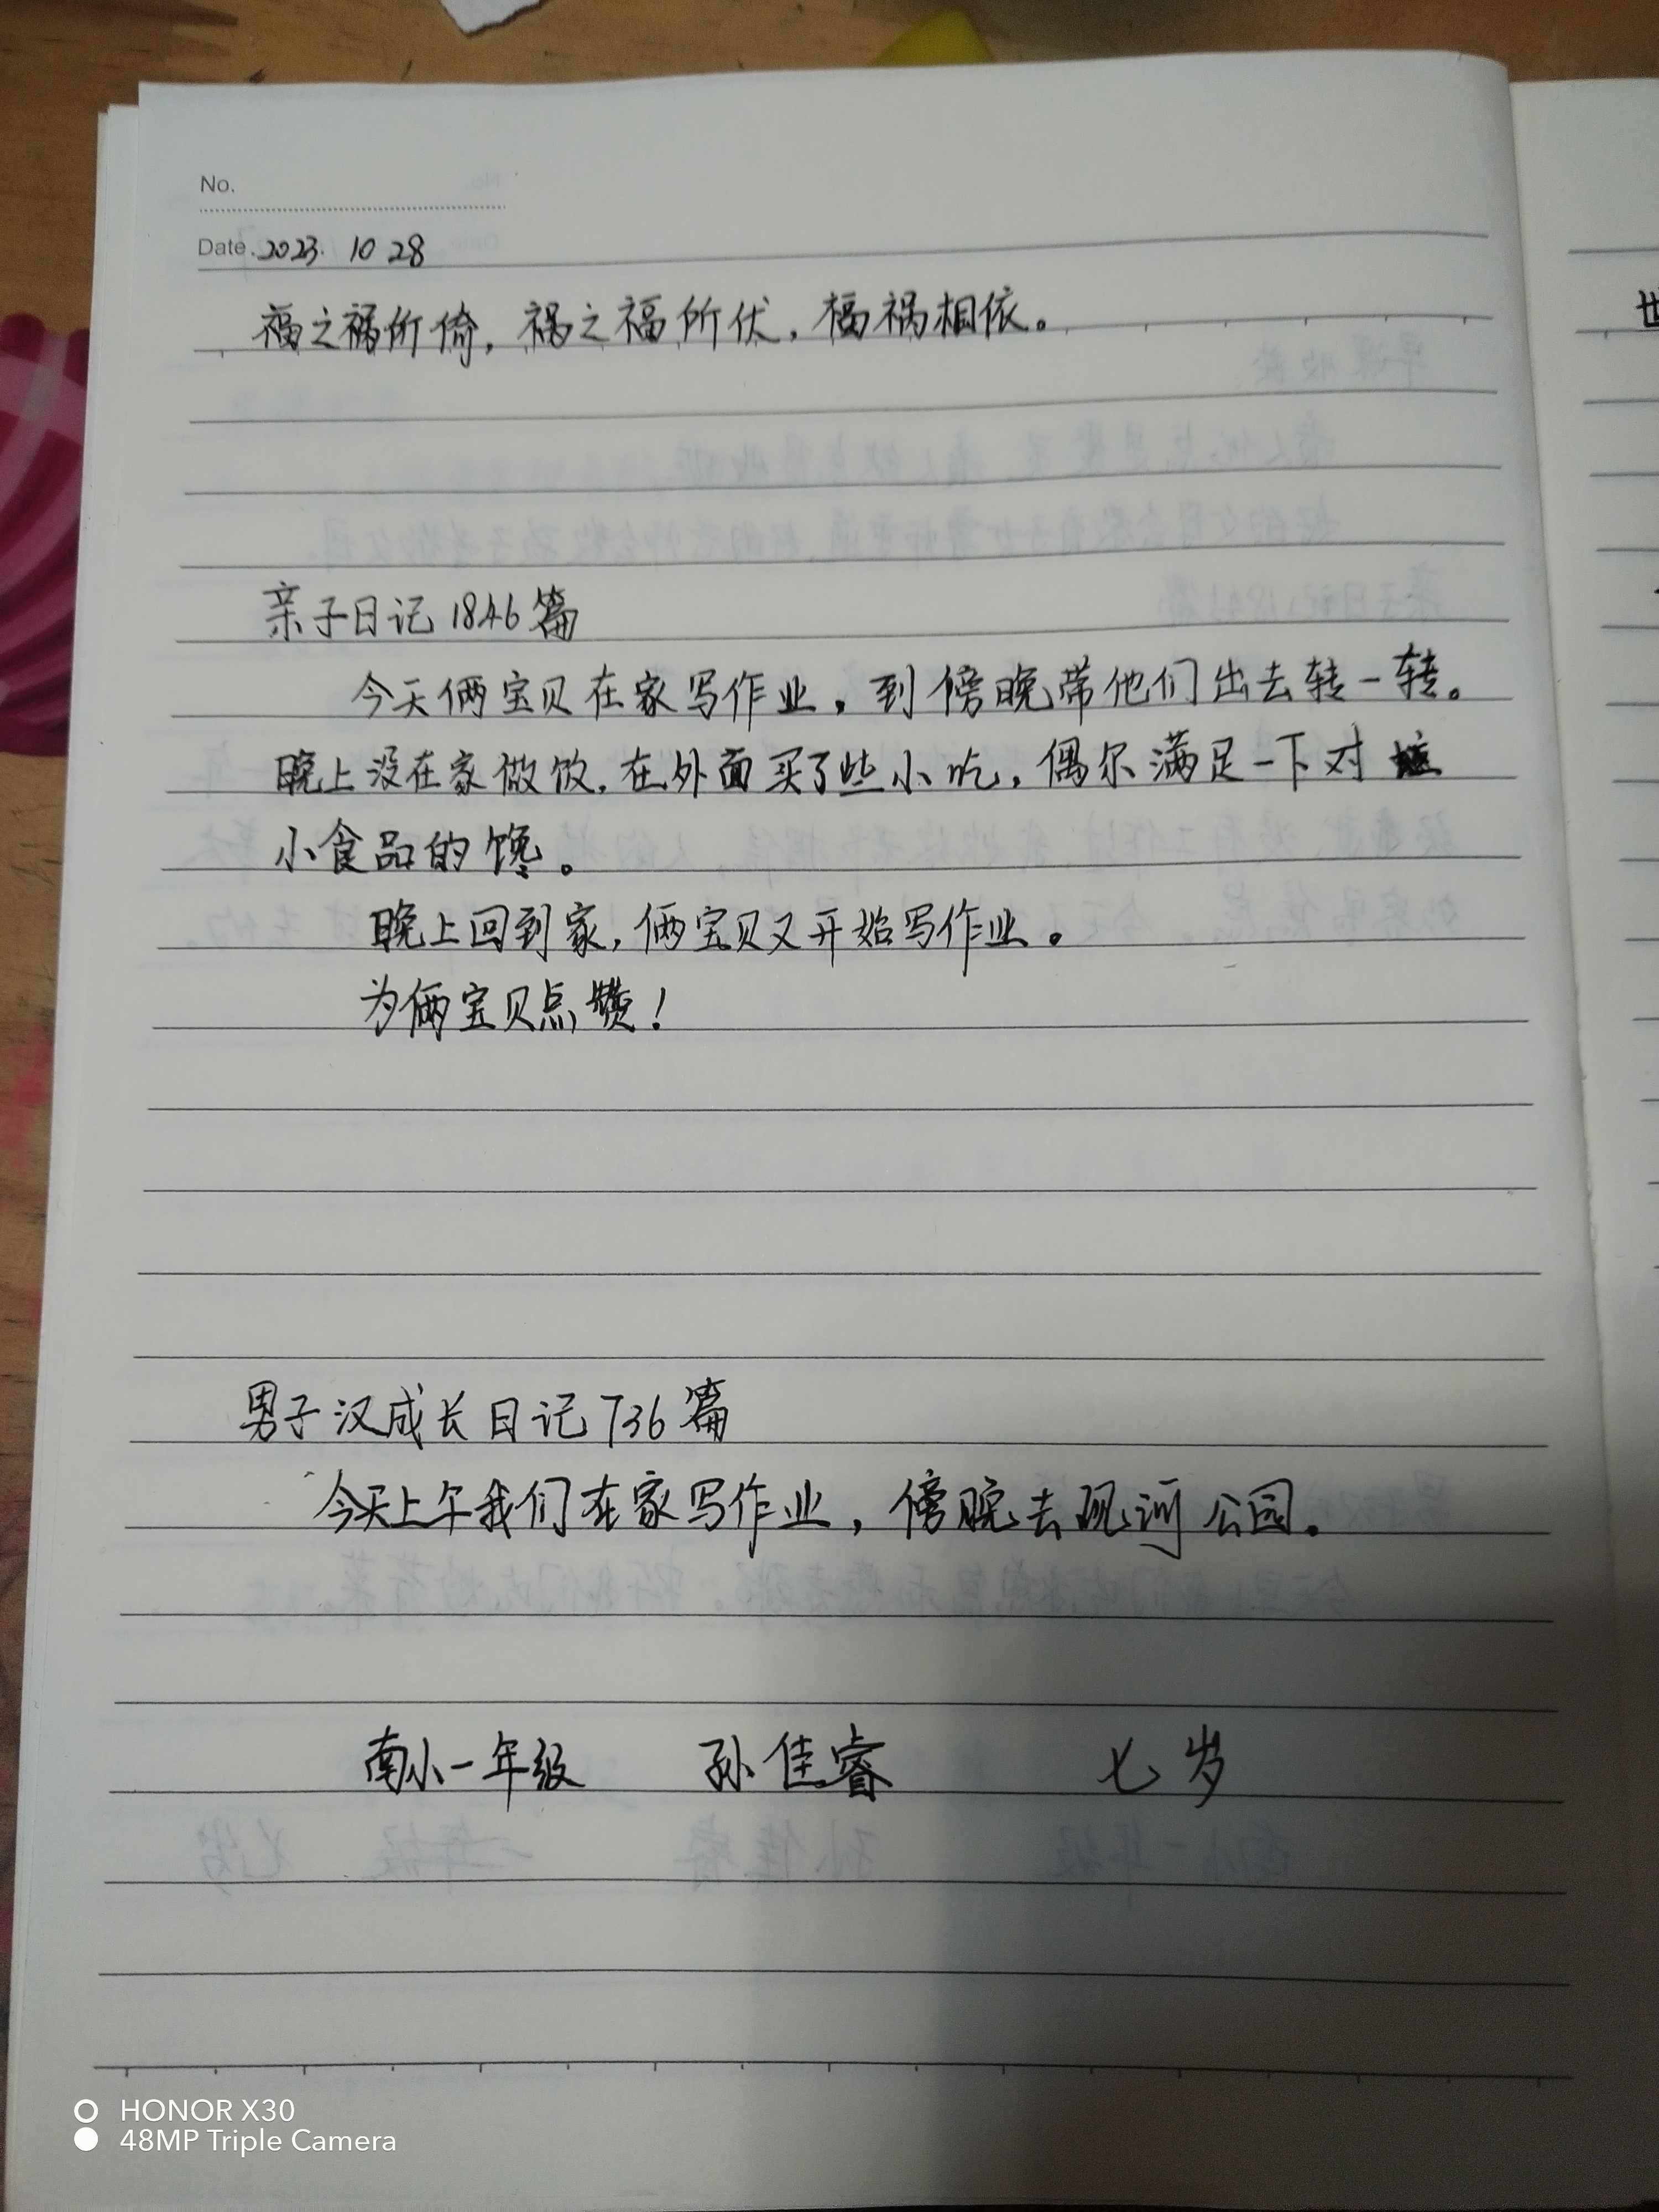 No.
Date. 2023. 10 28
福之祸所倚，祸之福所伏，福祸相依。
亲子日记1846篇
今天俩宝贝在家写作业，到傍晚带他们出去转一转。
晚上没在家做饭，在外面买了些小吃，偶尔满足一下对
小食品的馋。
晚上回到家，俩宝贝又开始写作业。
为俩宝贝点赞！
男子汉成长日记736篇
今天上午我们在家写作业，傍晚去砚河公园。
南小一年级 孙佳睿 七岁
HONOR X30
48MP Triple Camera